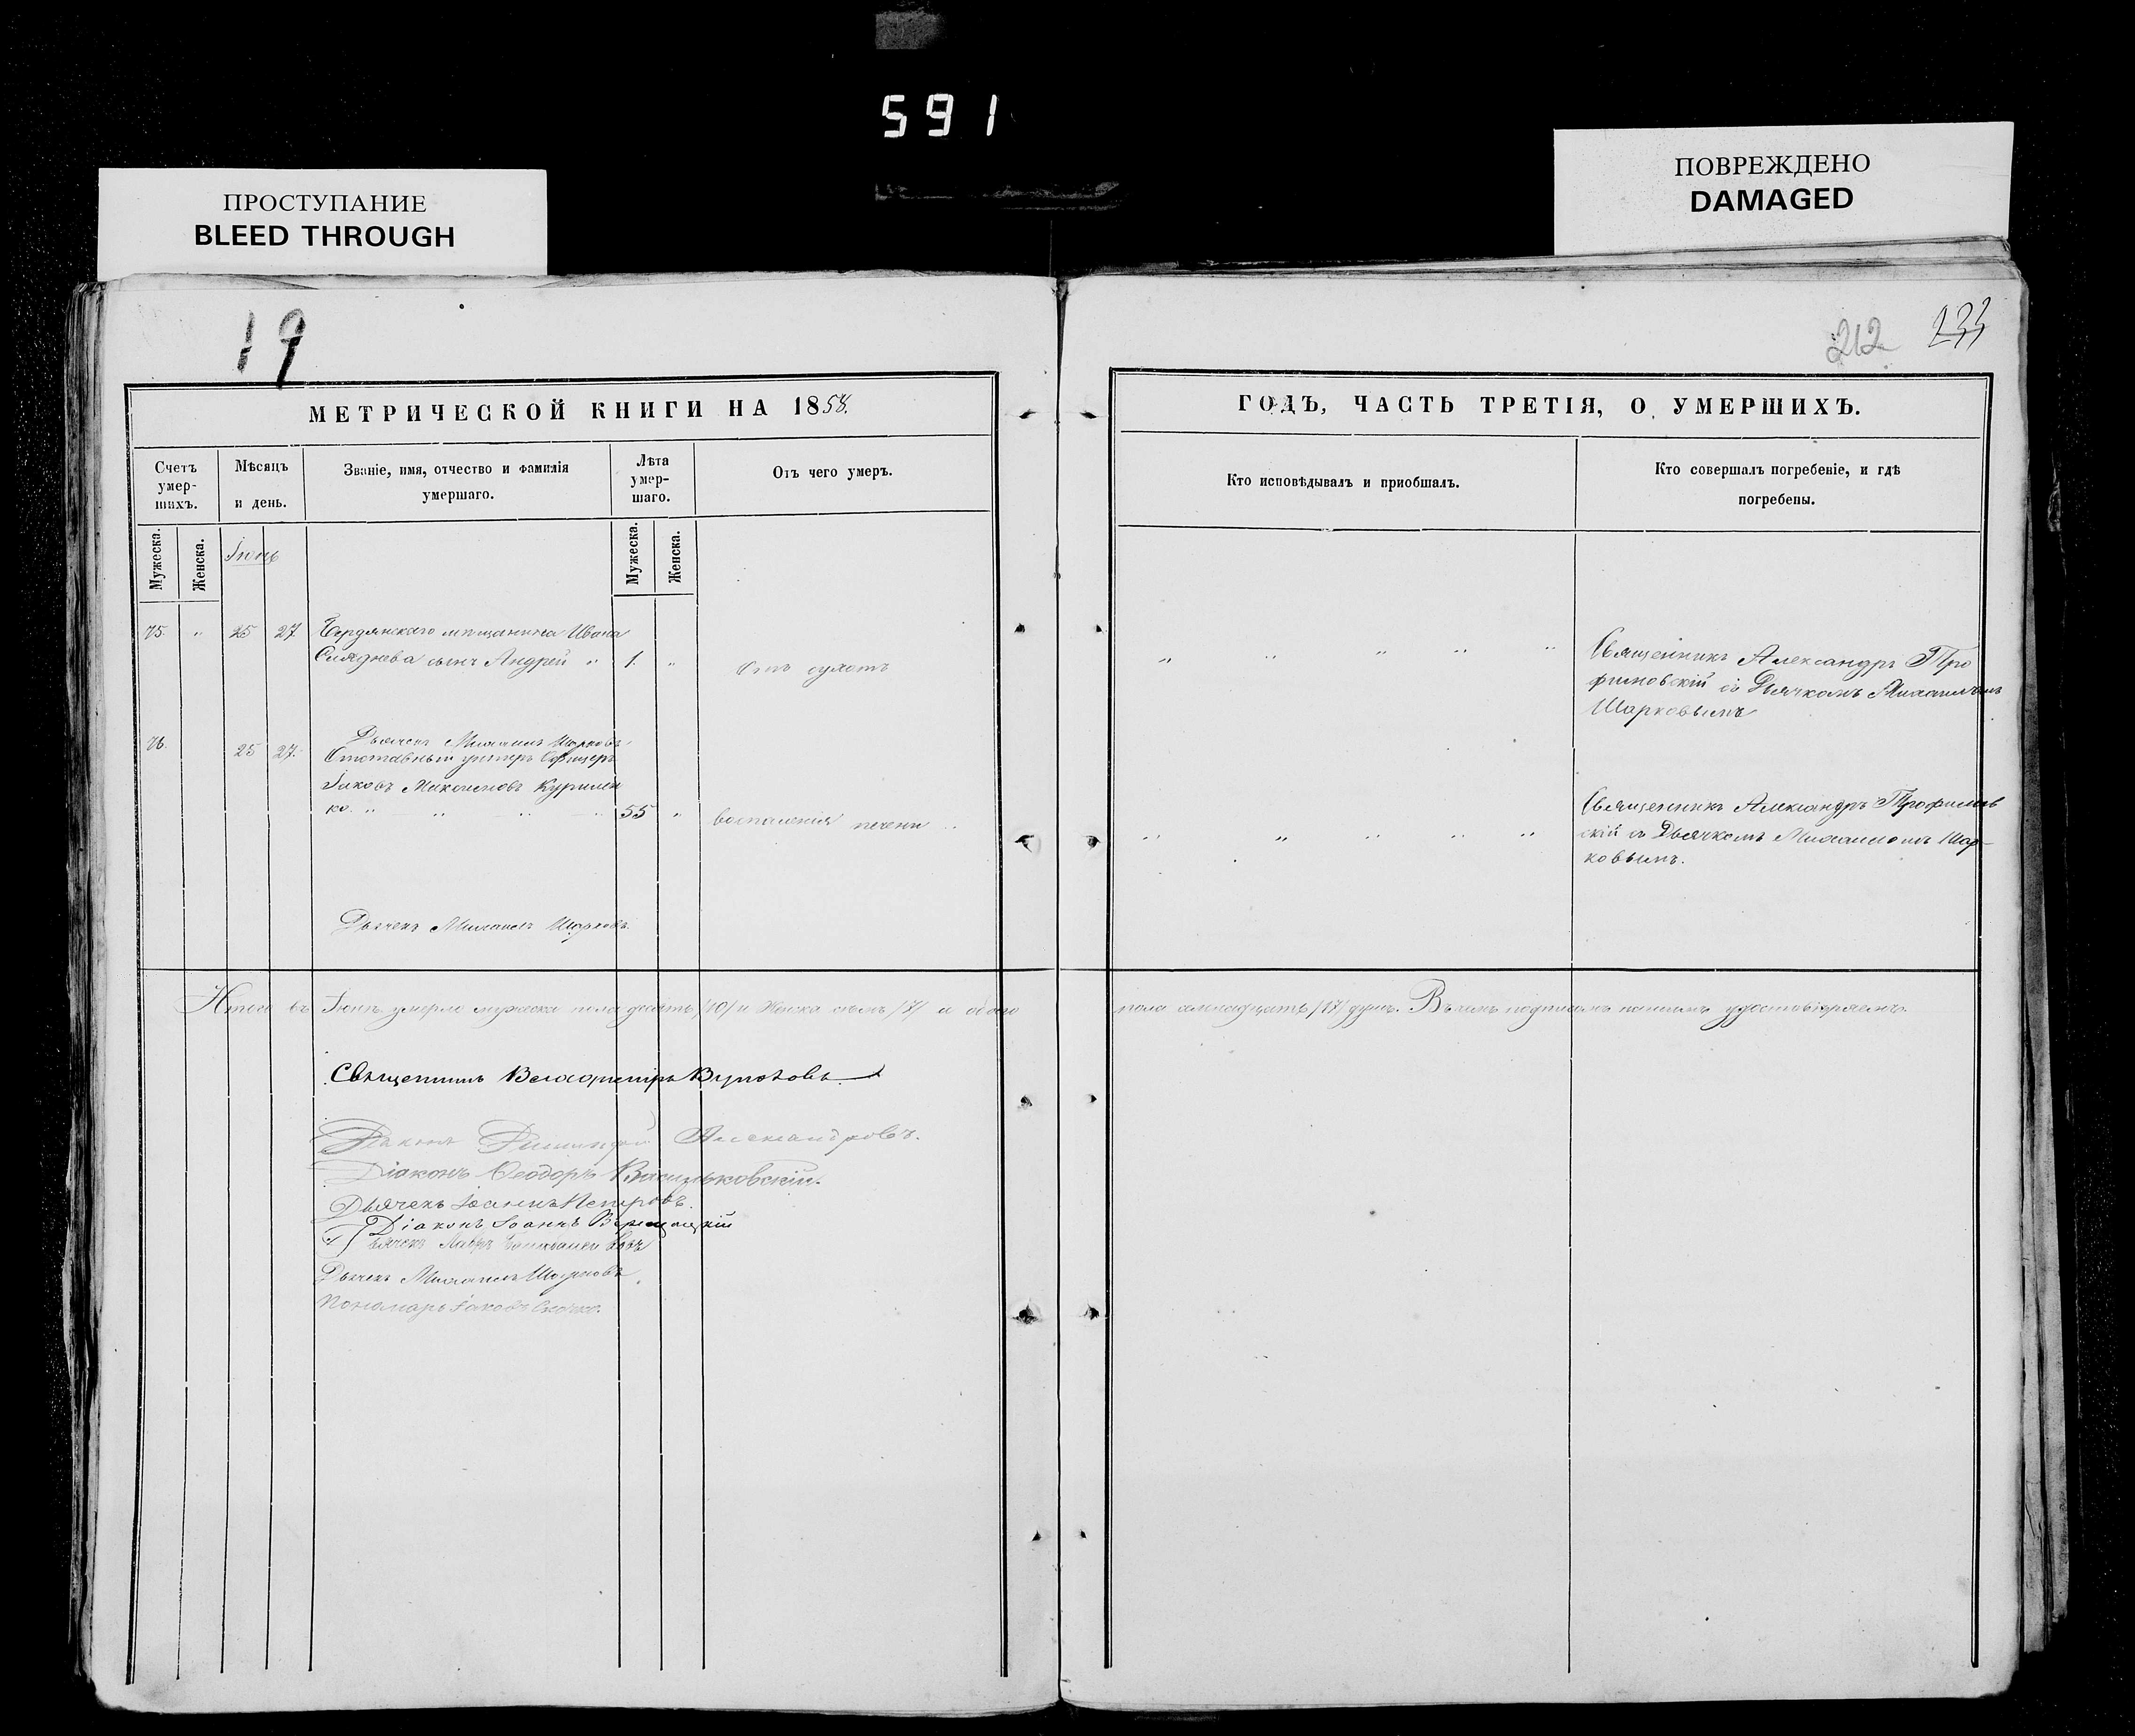 591
ПРОСТУПАНИЕ
BLEED THROUGH
ПОВРЕЖДЕНО
DAMAGED
19
212
МЕТРИЧЕСКОЙ КНИГИ НА 1858.
ГОДЪ, ЧАСТЬ ТРЕТІЯ, О УМЕРШИХЪ.
Счетъ умер-шихъ.
Мѣсяцъ и день.
Званіе, имя, отчество и фамилія умершаго.
Лѣта умер-шаго.
Отъ чего умеръ.
Кто исповѣдывалъ и пріобщалъ.
Кто совершалъ погребеніе, и гдѣ погребены.
Мужеска.
Женска.
Мужеска.
Женска.
Іюнь
75. " 25 27 Бердянскаго мещанина Ивана
сынъ Андрей " 1. "
Священникъ Александръ Тро
фимовскій съ Дьячкомъ Михаиломъ
Шарковымъ
Дьячекъ Михаилъ Шарковъ
76. 25 27. Отставный унтеръ Офицеръ
Іаковъ Курилен
ко. " " " " 55 " воспаленія печени "
Священникъ Александръ Трофимов
скій съ Дьячкомъ Михаиломъ Шар-
ковымъ.
Дьячекъ Михаилъ Шарковъ.
Итого въ Іюнѣ умерло мужеска пола десять /10/ и Женска семь /7/ а обоего
пола семнадцать /17/ душъ. Въ чемъ подписомъ нашимъ удостовѣряемъ.
Священникъ
Діаконъ Александровъ.
Діаконъ Ѳеодоръ Васильковскій.
Дьячекъ Іоаннъ Петровъ.
Діаконъ Іоаннъ
Дьячекъ
Дьячекъ Михаилъ Шарковъ
Пономарь Іаковъ